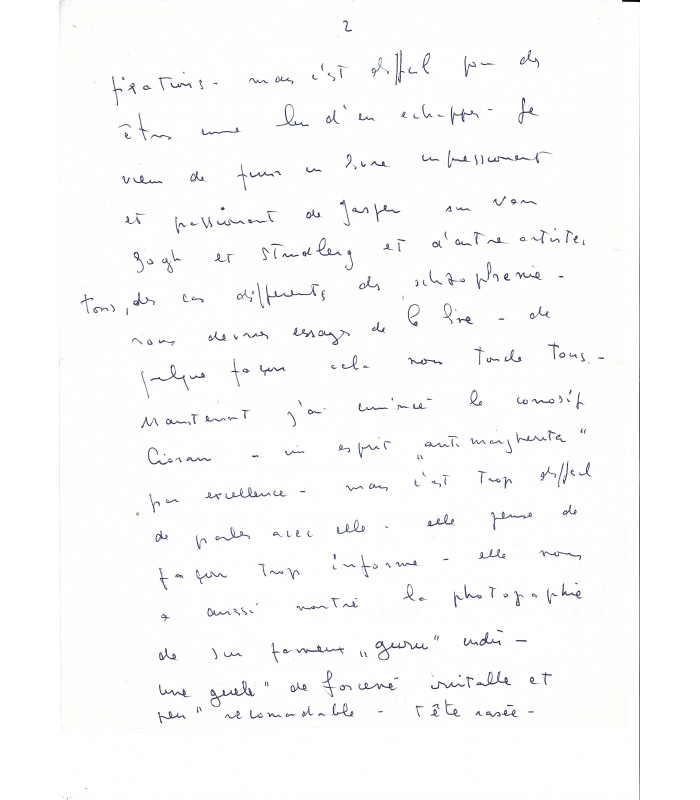 2
fixations - mais c'est diffcil pour des
êtres comme lui d'en echapper - Je
viens de finir un livre impressionant
et passionant de Jasper sur van
gogh et Strindberg et d'autre artiste,
tous, des cas differents de schizophrenie -
vous devries essayer de le lire - de
quelque façon cela nous touche tous. -
Maintenant j'ai comencé le corrosif
Cioran - un esprit „antimargherita"
par excellence - mais c'est trop diffcil
de parler avec elle - elle pense de
façon trop informe - elle nous
a aussi montré la photographie
de son fameux „guru" indû -
une guele" de forcené et
peu" recomadable - tête rasée -